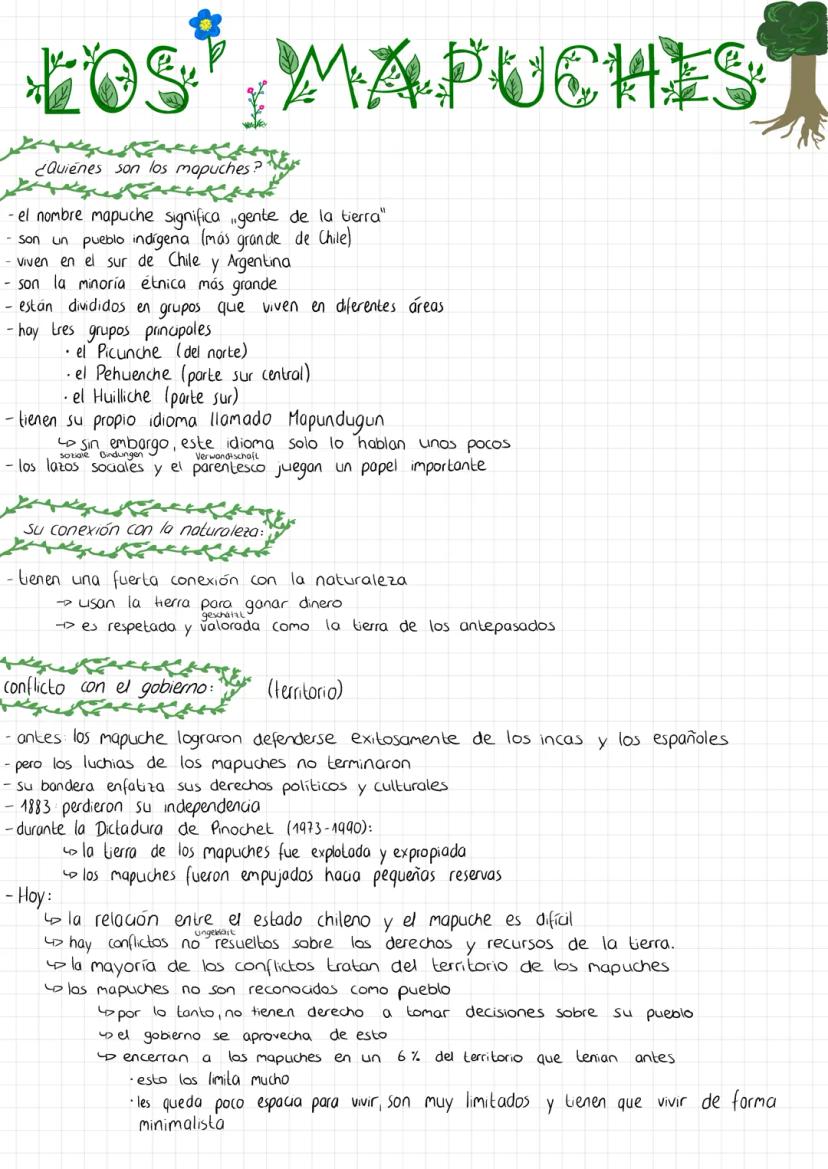 LOS MAPUCHES
¿Quiénes son los mapuches?
- el nombre mapuche significa „gente de la tierra"
- son un pueblo indígena (más grande de Chile)
- viven en el sur de Chile y Argentina
- son la minoría étnica más grande
- están divididos en grupos que viven en diferentes áreas
- hay tres grupos principales
· el Picunche (del norte)
· el Pehuenche (parte sur central)
· el Huilliche (parte sur)
- tienen su propio idioma llamado Mapundugun
↳ sin embargo, este idioma solo lo hablan unos pocos
soziale Bindungen Verwandtschaft
- los lazos sociales y el parentesco juegan un papel importante
su conexión con la naturaleza:
- tienen una fuerta conexión con la naturaleza
-> usan la tierra para ganar dinero
geschätzt
-> es respetada y valorada como la tierra de los antepasados
conflicto con el gobierno: (territorio)
- antes: los mapuche lograron defenderse exitosamente de los incas y los españoles
- pero los luchias de los mapuches no terminaron
- su bandera enfatiza sus derechos políticos y culturales
- 1883: perdieron su independencia
- durante la Dictadura de Pinochet (1973-1990):
↳ la tierra de los mapuches fue explotada y expropiada
↳ los mapuches fueron empujados hacia pequeñas reservas
- Hoy:
↳ la relación entre el estado chileno y el mapuche es difícil
ungeklärt
↳ hay conflictos no resueltos sobre los derechos y recursos de la tierra.
↳ la mayoría de los conflictos tratan del territorio de los mapuches
↳ los mapuches no son reconocidos como pueblo
↳ por lo tanto, no tienen derecho a tomar decisiones sobre su pueblo
↳ el gobierno se aprovecha de esto
↳ encerran a los mapuches en un 6% del territorio que tenian antes
· esto los limita mucho
· les queda poco espacia para vivir, son muy limitados y tienen que vivir de forma
minimalista